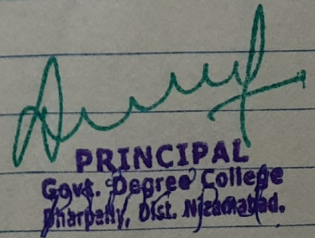 PRINCIPAL
Govt. Degree College
Dharpally, Dist. Nizamabad.